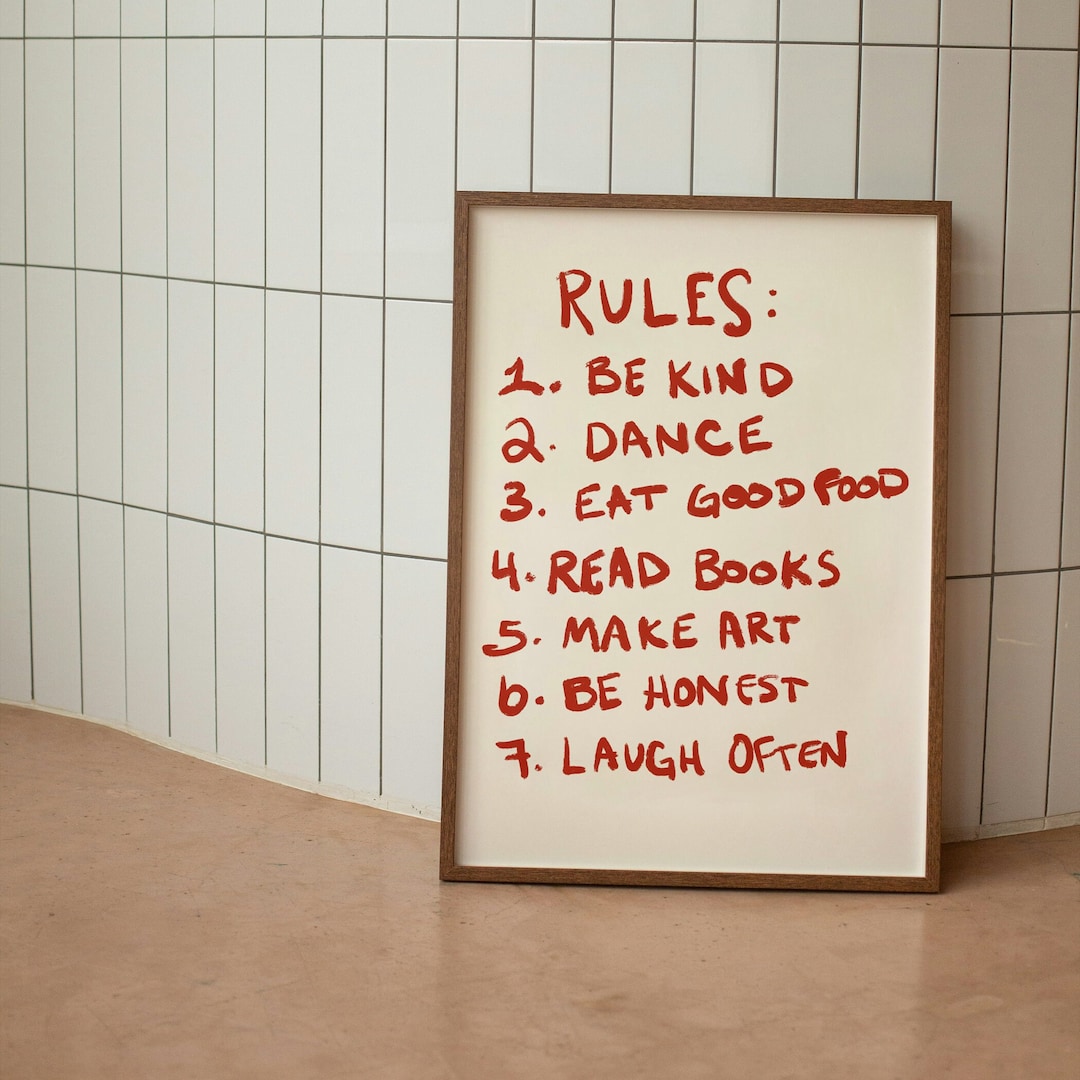 RULES:
1. BE KIND
2. DANCE
3. EAT GOOD FOOD
4. READ BOOKS
5. MAKE ART
6. BE HONEST
7. LAUGH OFTEN